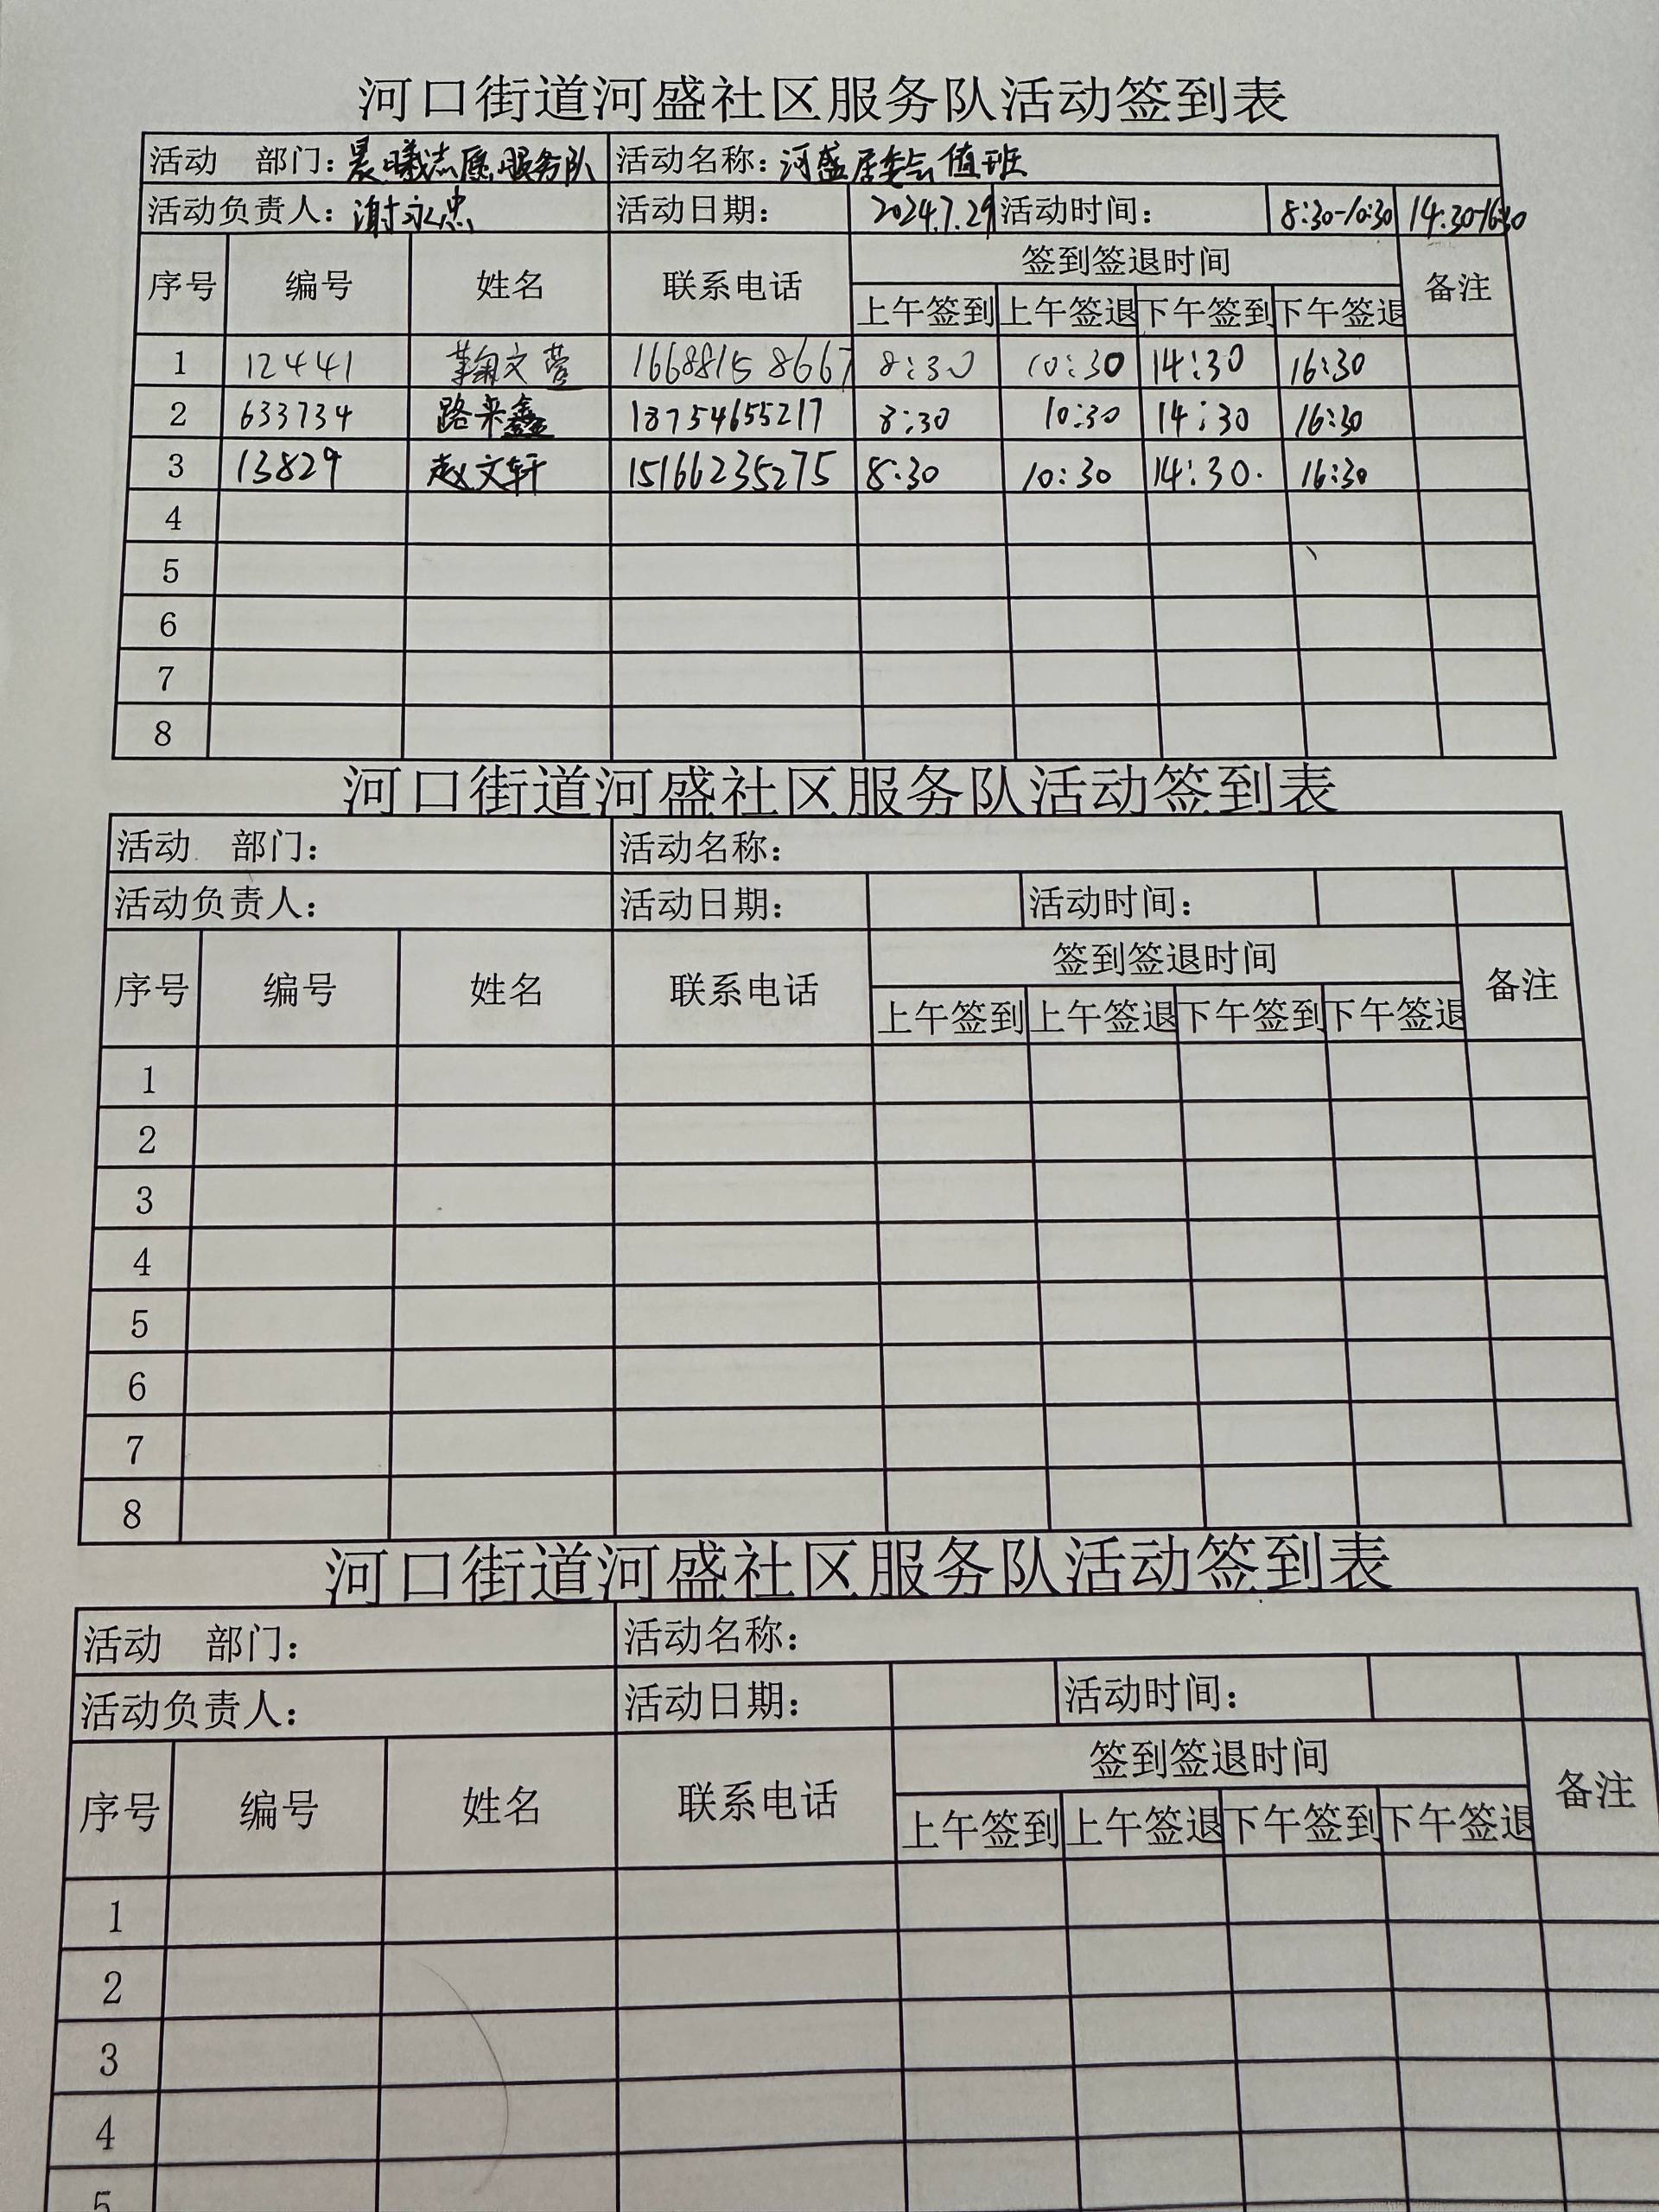 河口街道河盛社区服务队活动签到表
活动 部门：晨曦志愿服务队 活动名称：河盛居委会值班
活动负责人：谢永忠 活动日期： 2024.7.29 活动时间： 8:30-10:30 14:30-16:30
签到签退时间
序号 编号 姓名 联系电话 备注
上午签到 上午签退 下午签到 下午签退
1 12441 鞠文萱 16688158667 8:30 10:30 14:30 16:30
2 633734 路来鑫 18754655217 8:30 10:30 14:30 16:30
3 13829 赵文轩 15166235275 8:30 10:30 14:30. 16:30
4
5
6
7
8
河口街道河盛社区服务队活动签到表
活动 部门： 活动名称：
活动负责人： 活动日期： 活动时间：
签到签退时间
序号 编号 姓名 联系电话 备注
上午签到 上午签退 下午签到 下午签退
1
2
3
4
5
6
7
8
河口街道河盛社区服务队活动签到表
活动 部门： 活动名称：
活动负责人： 活动日期： 活动时间：
签到签退时间
序号 编号 姓名 联系电话 备注
上午签到 上午签退 下午签到 下午签退
1
2
3
4
5